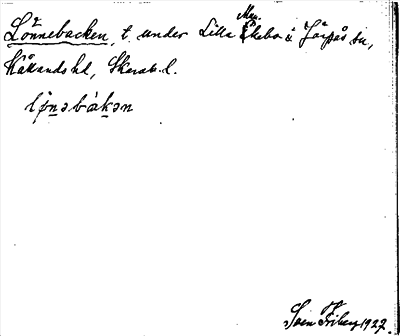 Lönnebacken, t. under Lilla
Men.
Ekebo i Järpås sn,
Kållands hd, Skarab. l.
lø̀nəbàkən
Sven Friberg 1927.